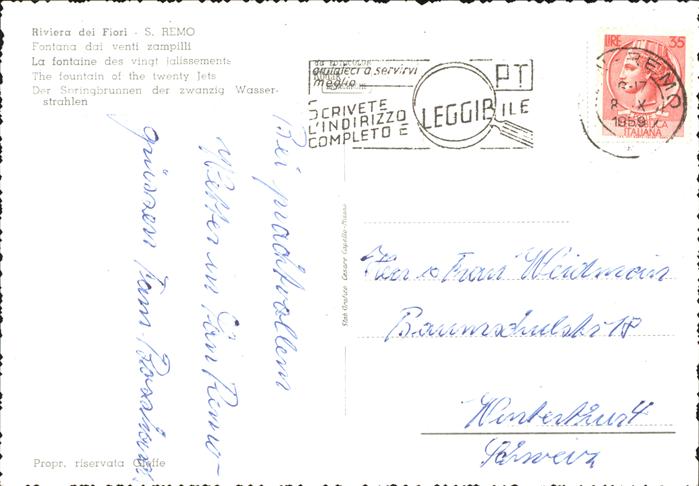 Riviera dei Fiori - S. REMO
Fontana dai venti zampilli
La fontaine des vingt jalissements
The fountain of the twenty Jets
Der Springbrunnen der zwanzig Wasser-
strahlen
aiutateci a servirvi
meglio
PT
SCRIVETE
L'INDIRIZZO
COMPLETO E LEGGIBILE
S. REMO
8 X
1959
LIRE 35
ITALIANA
Bei prachtvollem
Wetter in San Remo
grüssen Fam.
Stab. Grafico Cesare Capello-Milano
Herr u Frau Weidmann
Baumschulstr 18
Winterthur 4
Schweiz
Propr. riservata